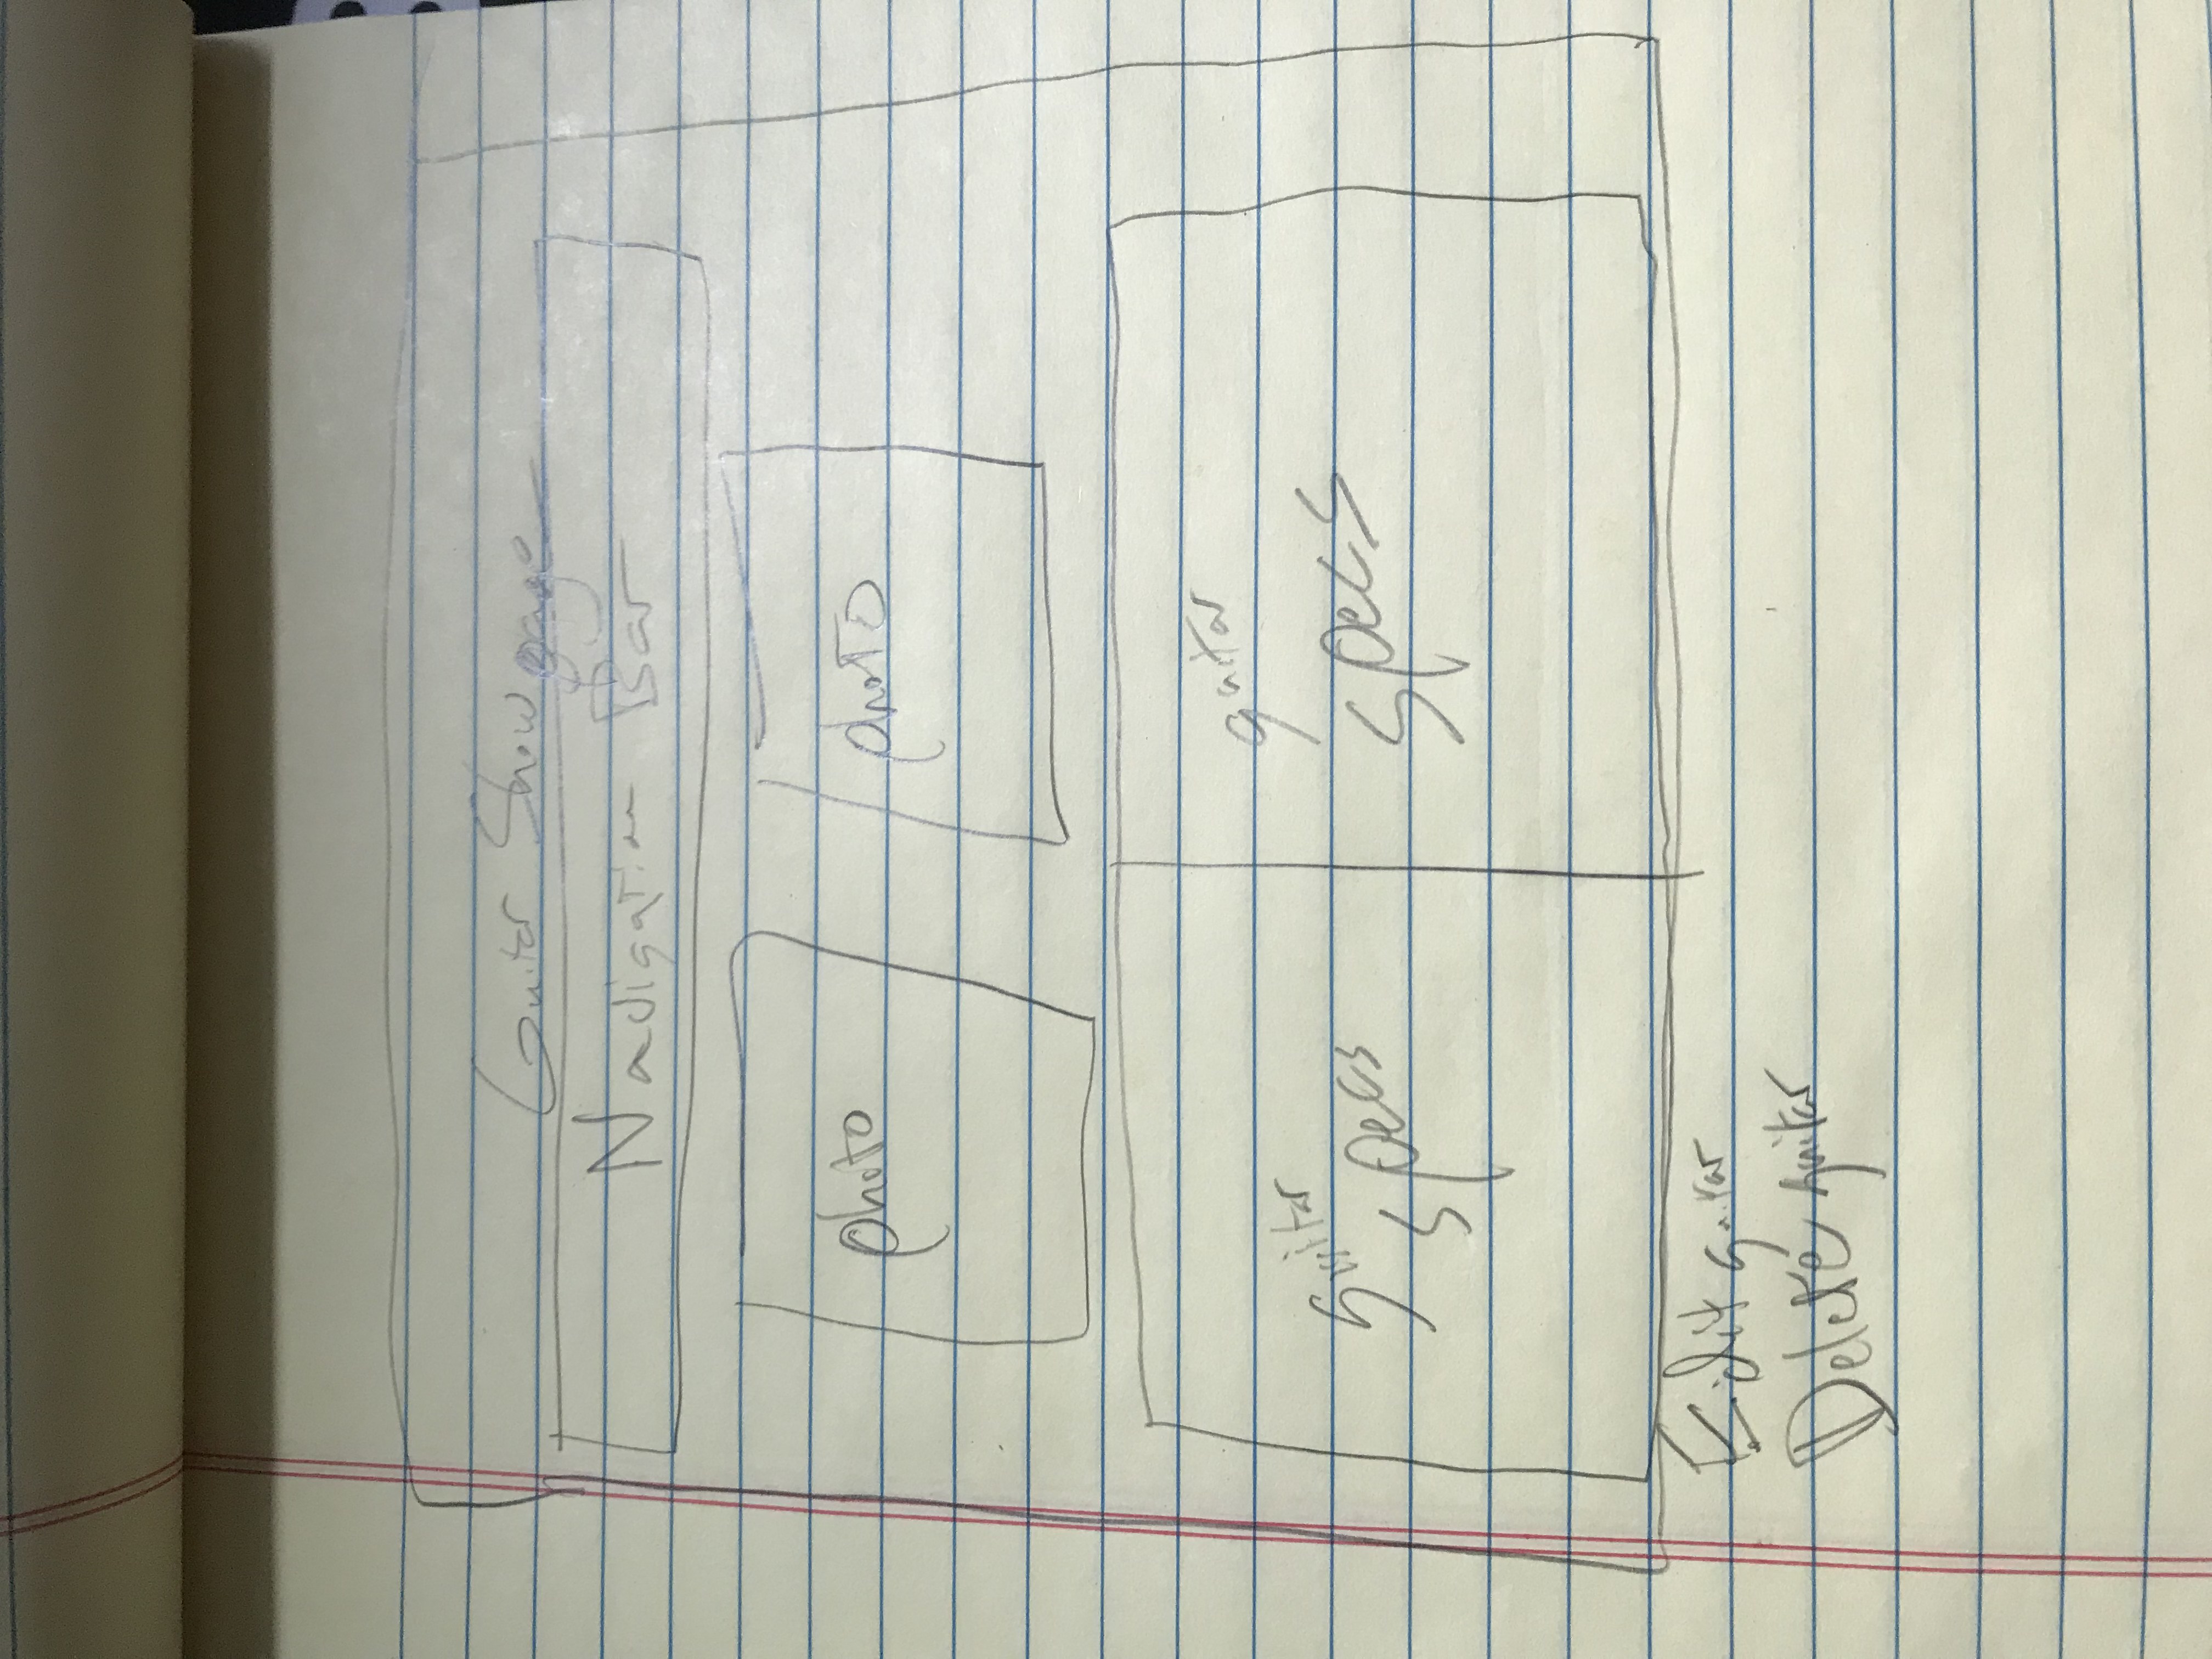 Guitar Show page
Navigation Bar
photo
photo
guitar
specs
guitar
specs
Edit guitar
Delete guitar